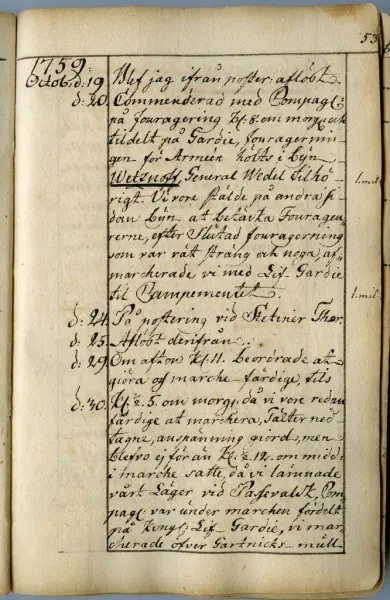 53
1759.
Octob: d: 19. Blef jag ifrån poster: aflöst.
d: 20. Commenderad med Compagl:
på fouragering Kl: 8. om morg: och
tildelt på Gardie, fouragernin-
gen för Armeen holts i byn
Wetznoff, General Wedel tilhö- 1. mil
rigt. Vi vore stälde på andra si-
dan byn at betäcka Fourageu-
rerne, efter slutad fouragerning
som var rätt sträng och noga, af-
marcherade vi med Lif Gardie
til Campementet. 1. mil.
d: 24. På postering vid Stetiner Thor.
d: 25. Aflöst derifrån.
d: 29. Om afton Kl: 11. beordrade at
giöra oss marche-färdige, tils
d: 30. Kl: ½ 5. om morg: då vi vore redan
färdige at marchera, Tälter ned-
tagne, anspänning giord, men
blefvo ej för än Kl: ½ 12. om midd:
i marche satte, då vi lämnade
vårt Läger vid Passevalck, Com-
pagl: var under marchen fördelt
på Kongl: Lif Gardie, vi mar-
cherade öfver Gartnicks-müll